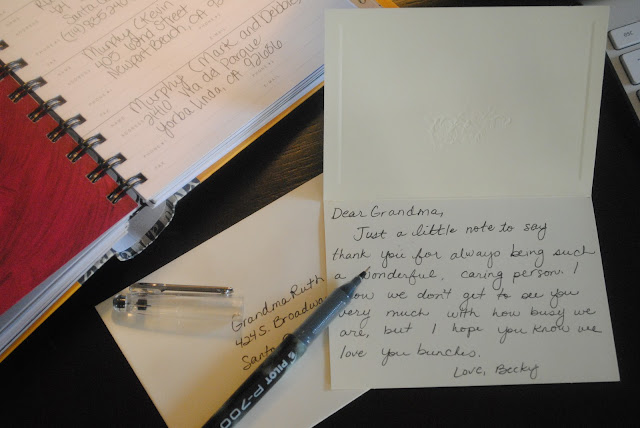 Santa
Murphy (Kevin)
435 62nd Street
Newport Beach, CA
Murphy (Mark and Debbie)
Via del Parque
Yorba Linda, CA
Dear Grandma,
Just a little note to say
thank you for always being such
a wonderful, caring person. I
know we don't get to see you
very much with how busy we
are, but I hope you know we
love you bunches.
Love, Becky
Grandma Ruth
424 S. Broadway
Santa
PILOT P-700